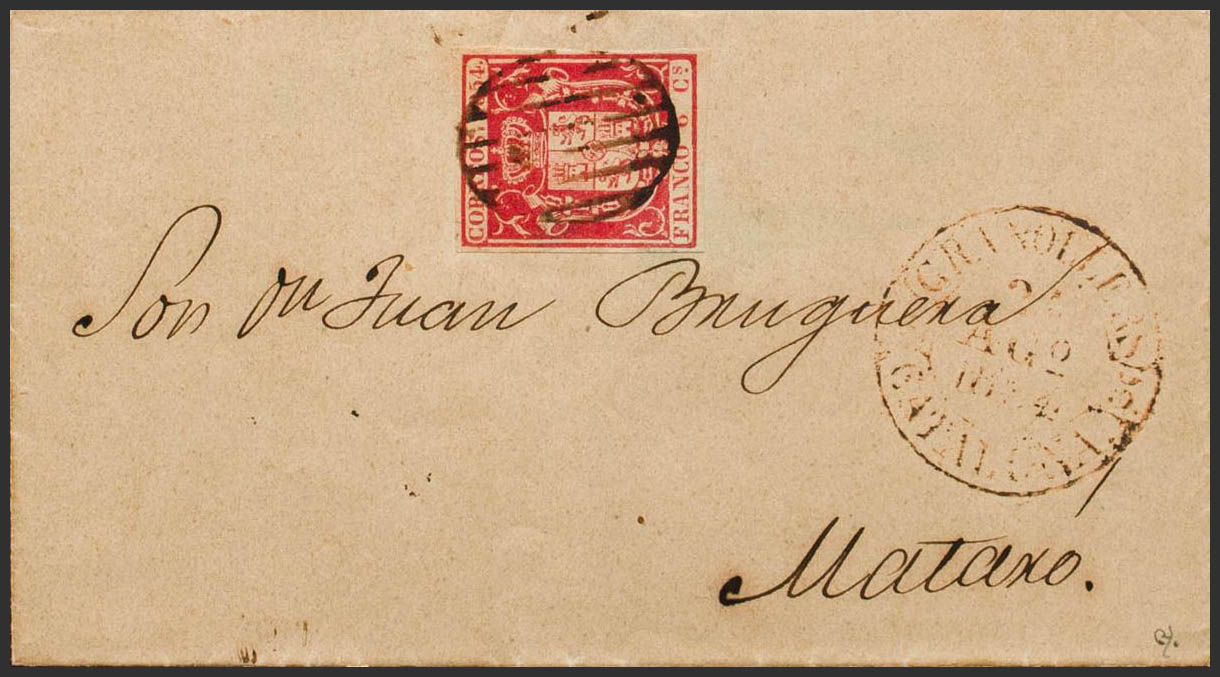 CORREOS. 1854.
FRANCO 6 Cs.
Son Dn Juan Bruguera
GRANOLLERS
AGO
1854
CATALUÑA
Mataro.